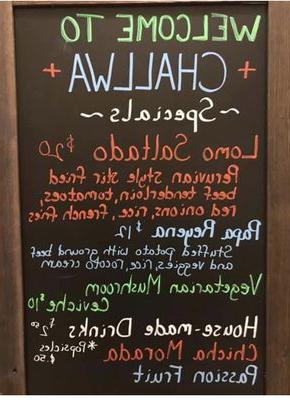 WELCOME TO
+ CHALLWA +
~ Specials ~
Lomo Saltado $20
Peruvian style stir fried
beef tenderloin, tomatoes,
red onions, rice, french fries
Papa Reyena $12
Stuffed potato with ground beef
and veggies, rice, rocoto cream
Vegetarian Mushroom
Ceviche $10
House-made Drinks $2.50
Chicha Morada *Popsicles
Passion Fruit $.50